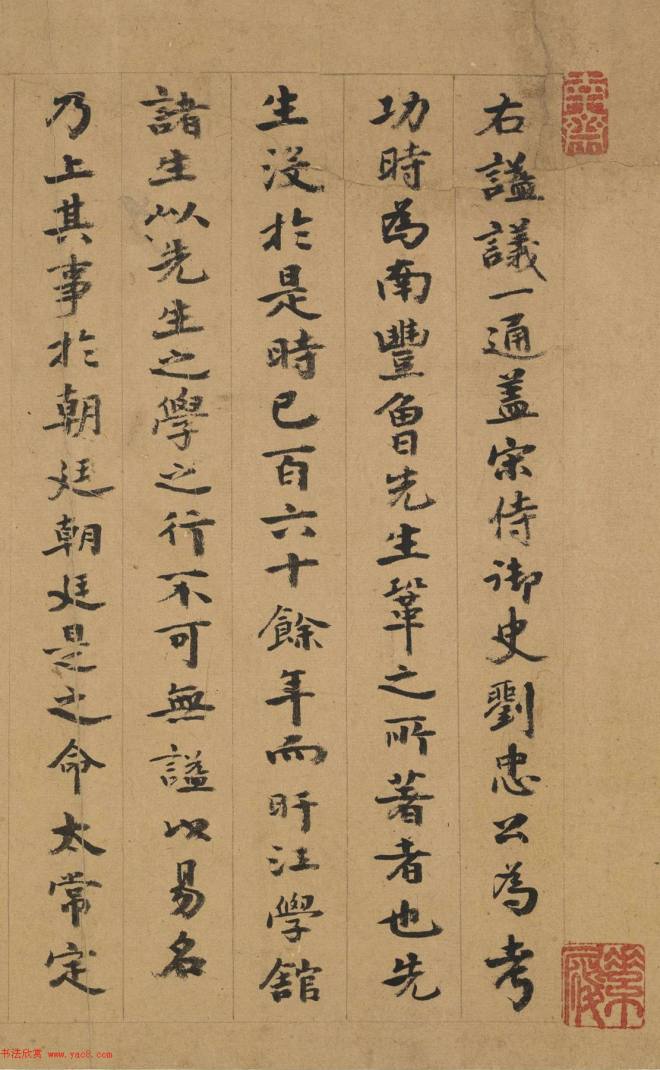 右謚議一通盖宋侍御史劉忠公為考
功時為南豐曾先生鞏之所著者也先
生没於是時已百六十餘年而旴江學舘
諸生以先生之學之行不可無謚以易名
乃上其事於朝廷朝廷是之命太常定
书法欣赏 www.yac8.com